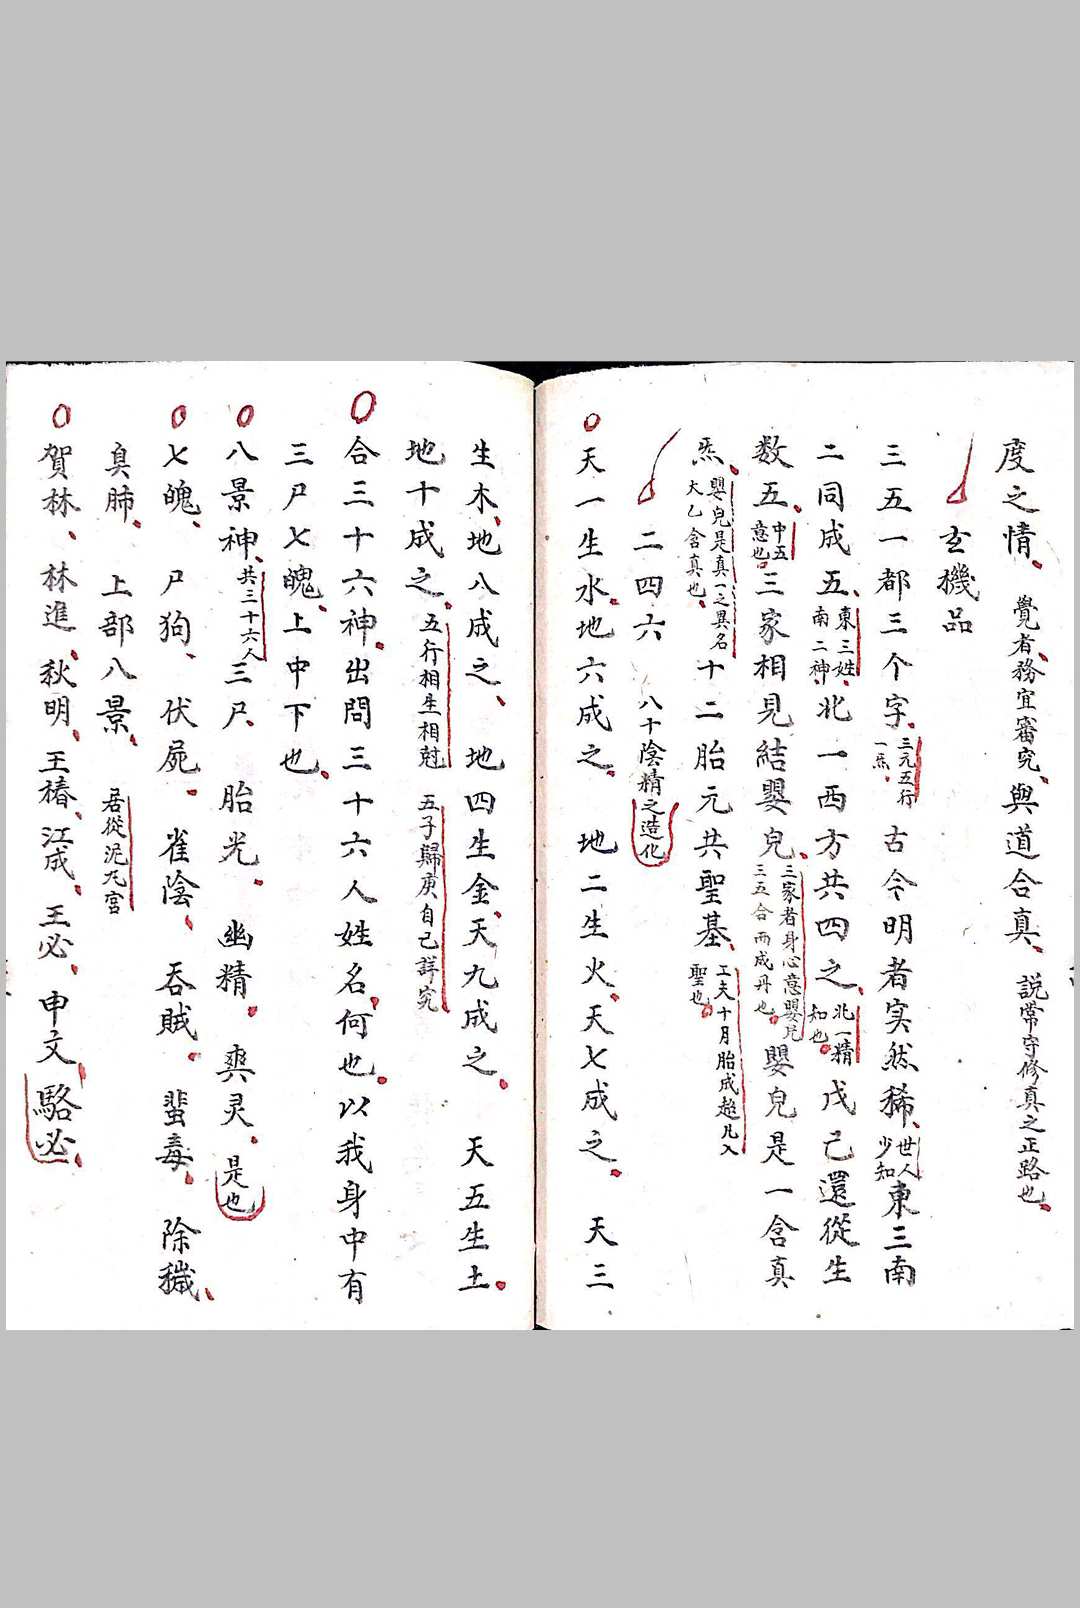 度之情、覺者務宜審究、與道合真、說常守修真之正路也、
玄機品
三五一都三个字、三元五行一炁、古今明者实然稀、世人少知東三南
二同成五、東三姓南二神、北一西方共四之、北一精知也、戊己還從生
数五、中五意也、三家相見結嬰兒、三家者身心意嬰兒三五合而成丹也、嬰兒是一含真
炁、嬰兒是真一之異名太乙含真也、十二胎元共聖基、工夫十月胎成超凡入聖也、
二四六 八十陰精之造化
天一生水、地六成之、地二生火、天七成之、天三
生木、地八成之、地四生金、天九成之、天五生土、
地十成之、五行相生相尅 五子歸庚自己詳究
合三十六神、出問三十六人姓名、何也、以我身中有
三尸七魄、上中下也、
八景神、共三十六人三尸、胎光、幽精、爽灵、是也
七魄、尸狗、伏屍、雀陰、吞賊、蜚毒、除穢、
臭肺、上部八景、居從泥丸宮
賀林、林進、秋明、王椿、江成、王必、申文、駱必、